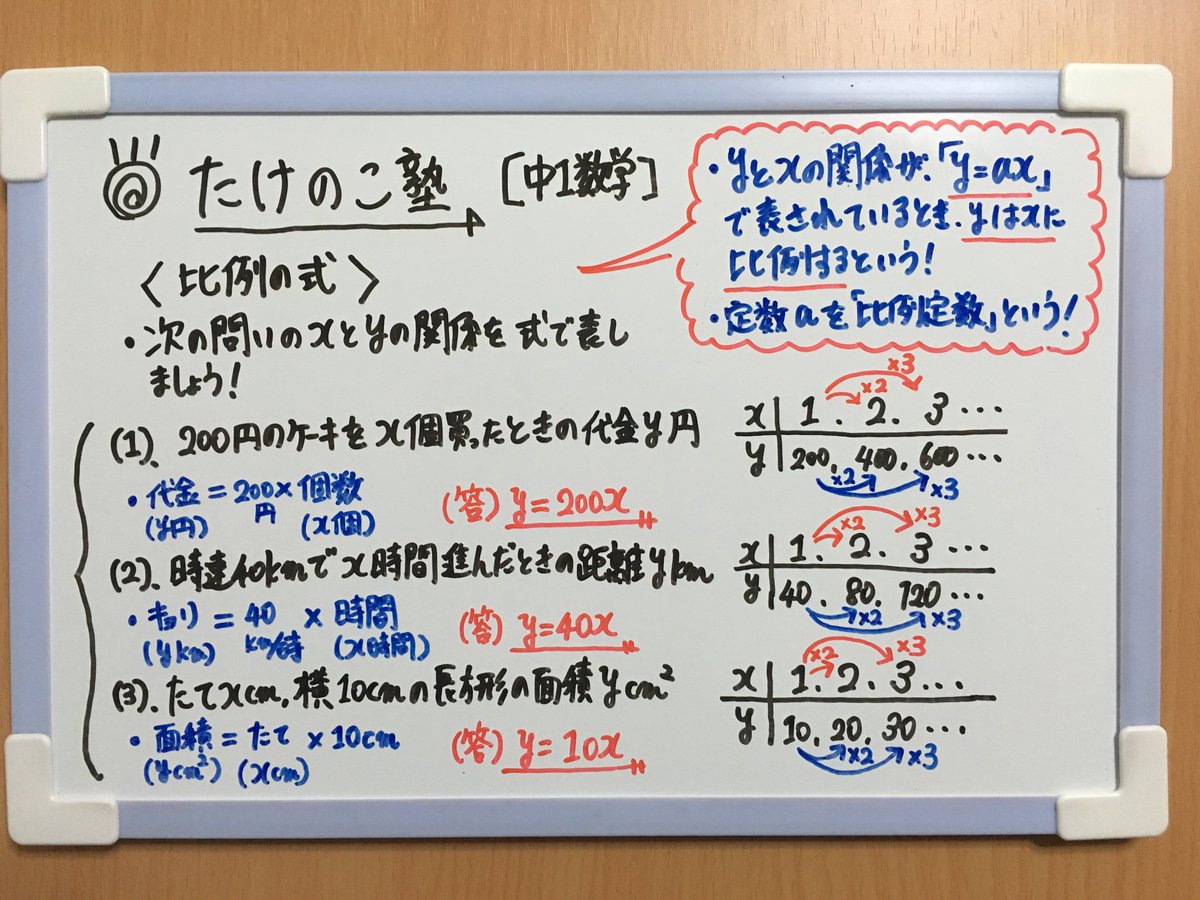 たけのこ塾 [中1数学]
・yとxの関係が、「y=ax」
で表されているとき、yはxに
比例するという!
・定数aを「比例定数」という!
〈比例の式〉
・次の問いのxとyの関係を式で表し
ましょう!
(1)、200円のケーキをx個買ったときの代金y円
・代金=200×個数
(y円) 円 (x個)
(答) y=200x
×3
×2
x 1. 2. 3…
y 200, 400, 600…
×2 ×3
(2)、時速40kmでx時間進んだときの距離ykm
・キョリ = 40 × 時間
(ykm) km/時 (x時間)
(答) y=40x
×2 ×3
x 1. 2. 3…
y 40. 80. 120…
×2 ×3
(3)、たてxcm,横10cmの長方形の面積ycm²
・面積=たて×10cm
(ycm²) (xcm)
(答) y=10x
×2 ×3
x 1. 2. 3…
y 10, 20, 30…
×2 ×3